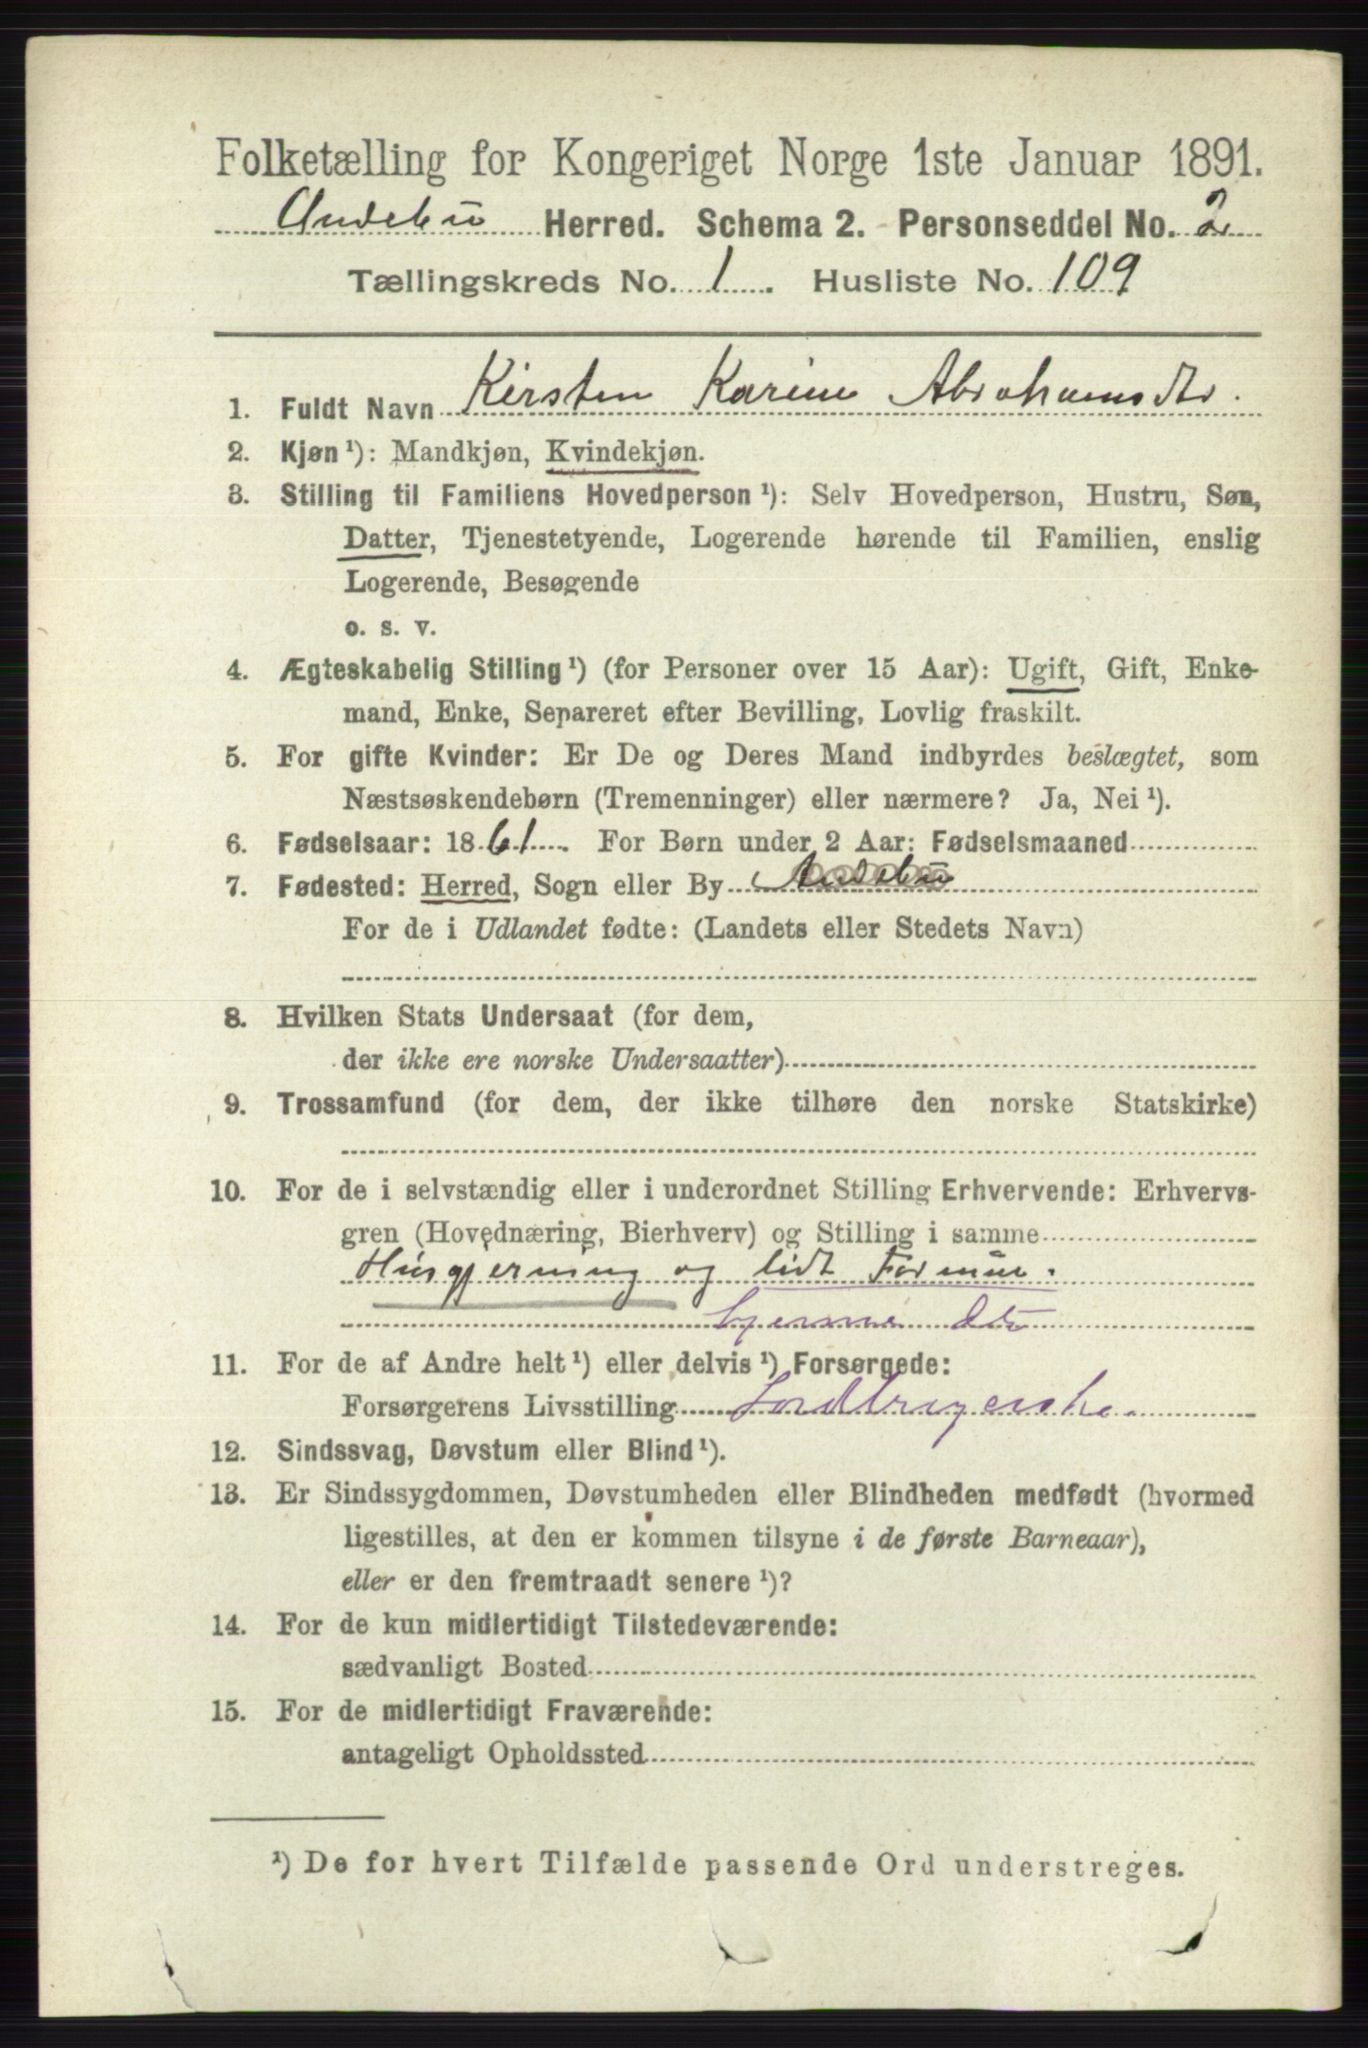 Folketælling for Kongeriget Norge 1ste Januar 1891.
Andebu Herred. Schema 2. Personseddel No. 2
Tællingskreds No. 1. Husliste No. 109
1. Fuldt Navn Kirsten Karine Abrahamsdtr.
2. Kjøn ¹): Mandkjøn, Kvindekjøn.
3. Stilling til Familiens Hovedperson ¹): Selv Hovedperson, Hustru, Søn,
Datter, Tjenestetyende, Logerende hørende til Familien, enslig
Logerende, Besøgende
o. s. v.
4. Ægteskabelig Stilling ¹) (for Personer over 15 Aar): Ugift, Gift, Enke-
mand, Enke, Separeret efter Bevilling, Lovlig fraskilt.
5. For gifte Kvinder: Er De og Deres Mand indbyrdes beslægtet, som
Næstsøskendebørn (Tremenninger) eller nærmere? Ja, Nei ¹).
6. Fødselsaar: 1861. For Børn under 2 Aar: Fødselsmaaned
7. Fødested: Herred, Sogn eller By Andebu
For de i Udlandet fødte: (Landets eller Stedets Navn)
8. Hvilken Stats Undersaat (for dem,
der ikke ere norske Undersaatter)
9. Trossamfund (for dem, der ikke tilhøre den norske Statskirke)
10. For de i selvstændig eller i underordnet Stilling Erhvervende: Erhvervs-
gren (Hovednæring, Bierhverv) og Stilling i samme
Husgjerning og lidt Formue.
hjemme
11. For de af Andre helt ¹) eller delvis ¹) Forsørgede:
Forsørgerens Livsstilling
12. Sindssvag, Døvstum eller Blind ¹).
13. Er Sindssygdommen, Døvstumheden eller Blindheden medfødt (hvormed
ligestilles, at den er kommen tilsyne i de første Barneaar),
eller er den fremtraadt senere ¹)?
14. For de kun midlertidigt Tilstedeværende:
sædvanligt Bosted
15. For de midlertidigt Fraværende:
antageligt Opholdssted
¹) De for hvert Tilfælde passende Ord understreges.